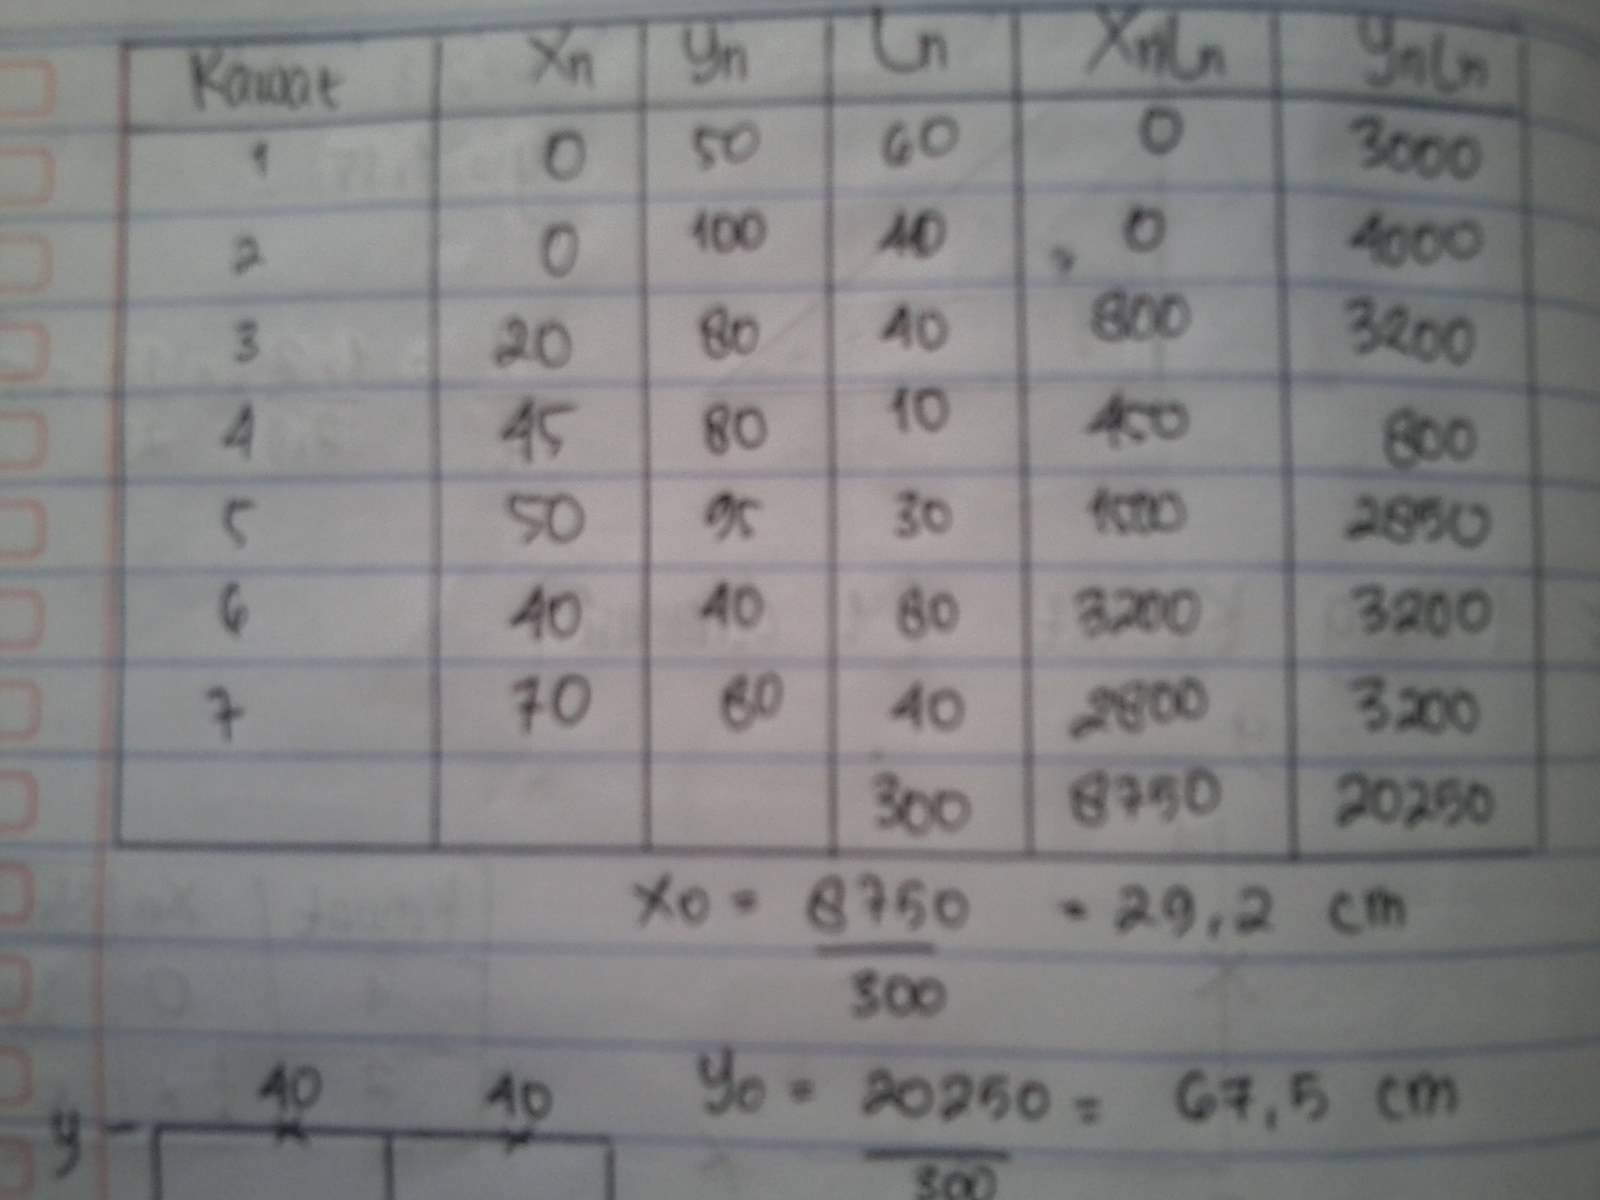 Kawat Xn Yn Ln XnLn YnLn
1 0 50 60 0 3000
2 0 100 40 0 4000
3 20 80 40 800 3200
4 45 80 10 450 800
5 50 95 30 1500 2850
6 40 40 80 3200 3200
7 70 80 40 2800 3200
300 8750 20250
X0 = 8750 = 29,2 cm
300
40 40 Y0 = 20250 = 67,5 cm
y 300